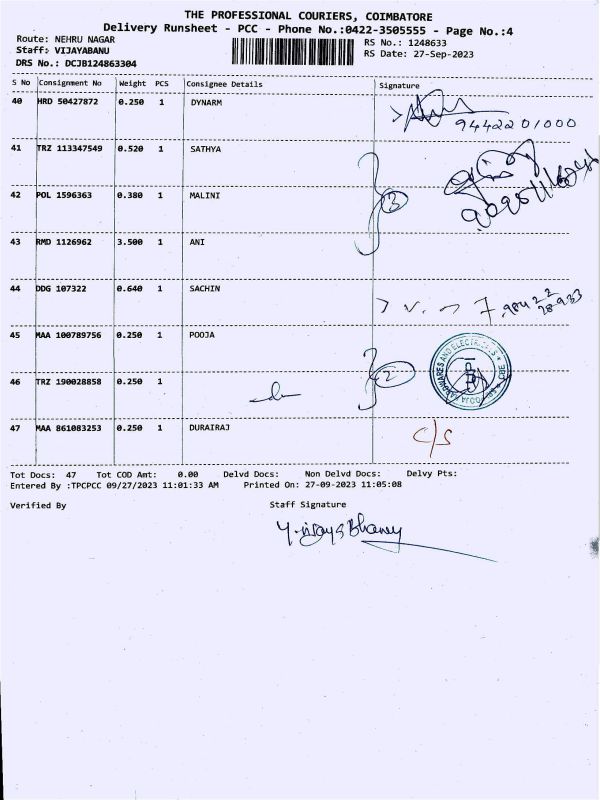 THE PROFESSIONAL COURIERS, COIMBATORE
Delivery Runsheet - PCC - Phone No.:0422-3505555 - Page No.:4
Route: NEHRU NAGAR
RS No.: 1248633
Staff: VIJAYABANU
RS Date: 27-Sep-2023
DRS No.: DCJB124863304
S No Consignment No Weight PCS Consignee Details Signature
40 HRD 50427872 0.250 1 DYNARM
9442201000
41 TRZ 113347549 0.520 1 SATHYA
42 POL 1596363 0.380 1 MALINI
3
43 RMD 1126962 3.500 1 ANI
44 DDG 107322 0.640 1 SACHIN
45 MAA 100789756 0.250 1 POOJA
2
46 TRZ 190028858 0.250 1
47 MAA 861083253 0.250 1 DURAIRAJ
C/S
Tot Docs: 47 Tot COD Amt: 0.00 Delvd Docs: Non Delvd Docs: Delvy Pts:
Entered By :TPCPCC 09/27/2023 11:01:33 AM Printed On: 27-09-2023 11:05:08
Verified By Staff Signature